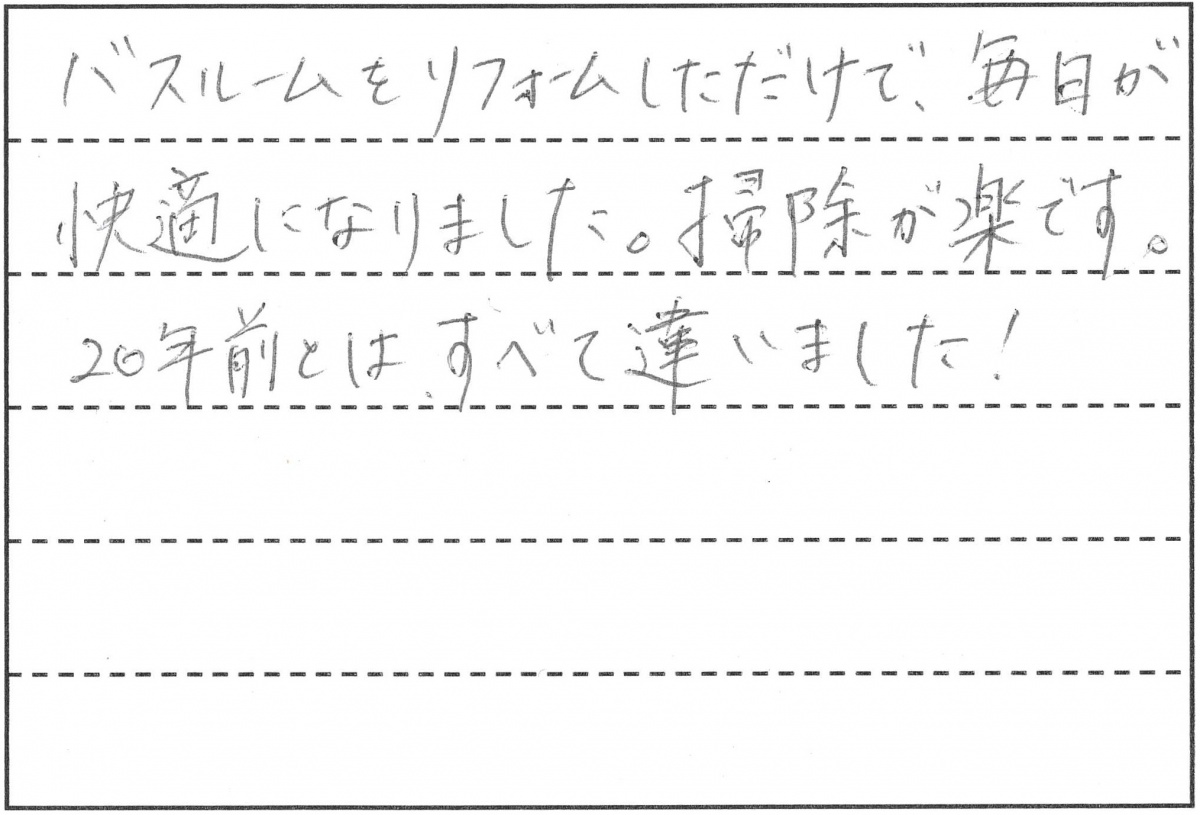 バスルームをリフォームしただけで、毎日が
快適になりました。掃除が楽です。
20年前とは、すべて違いました!